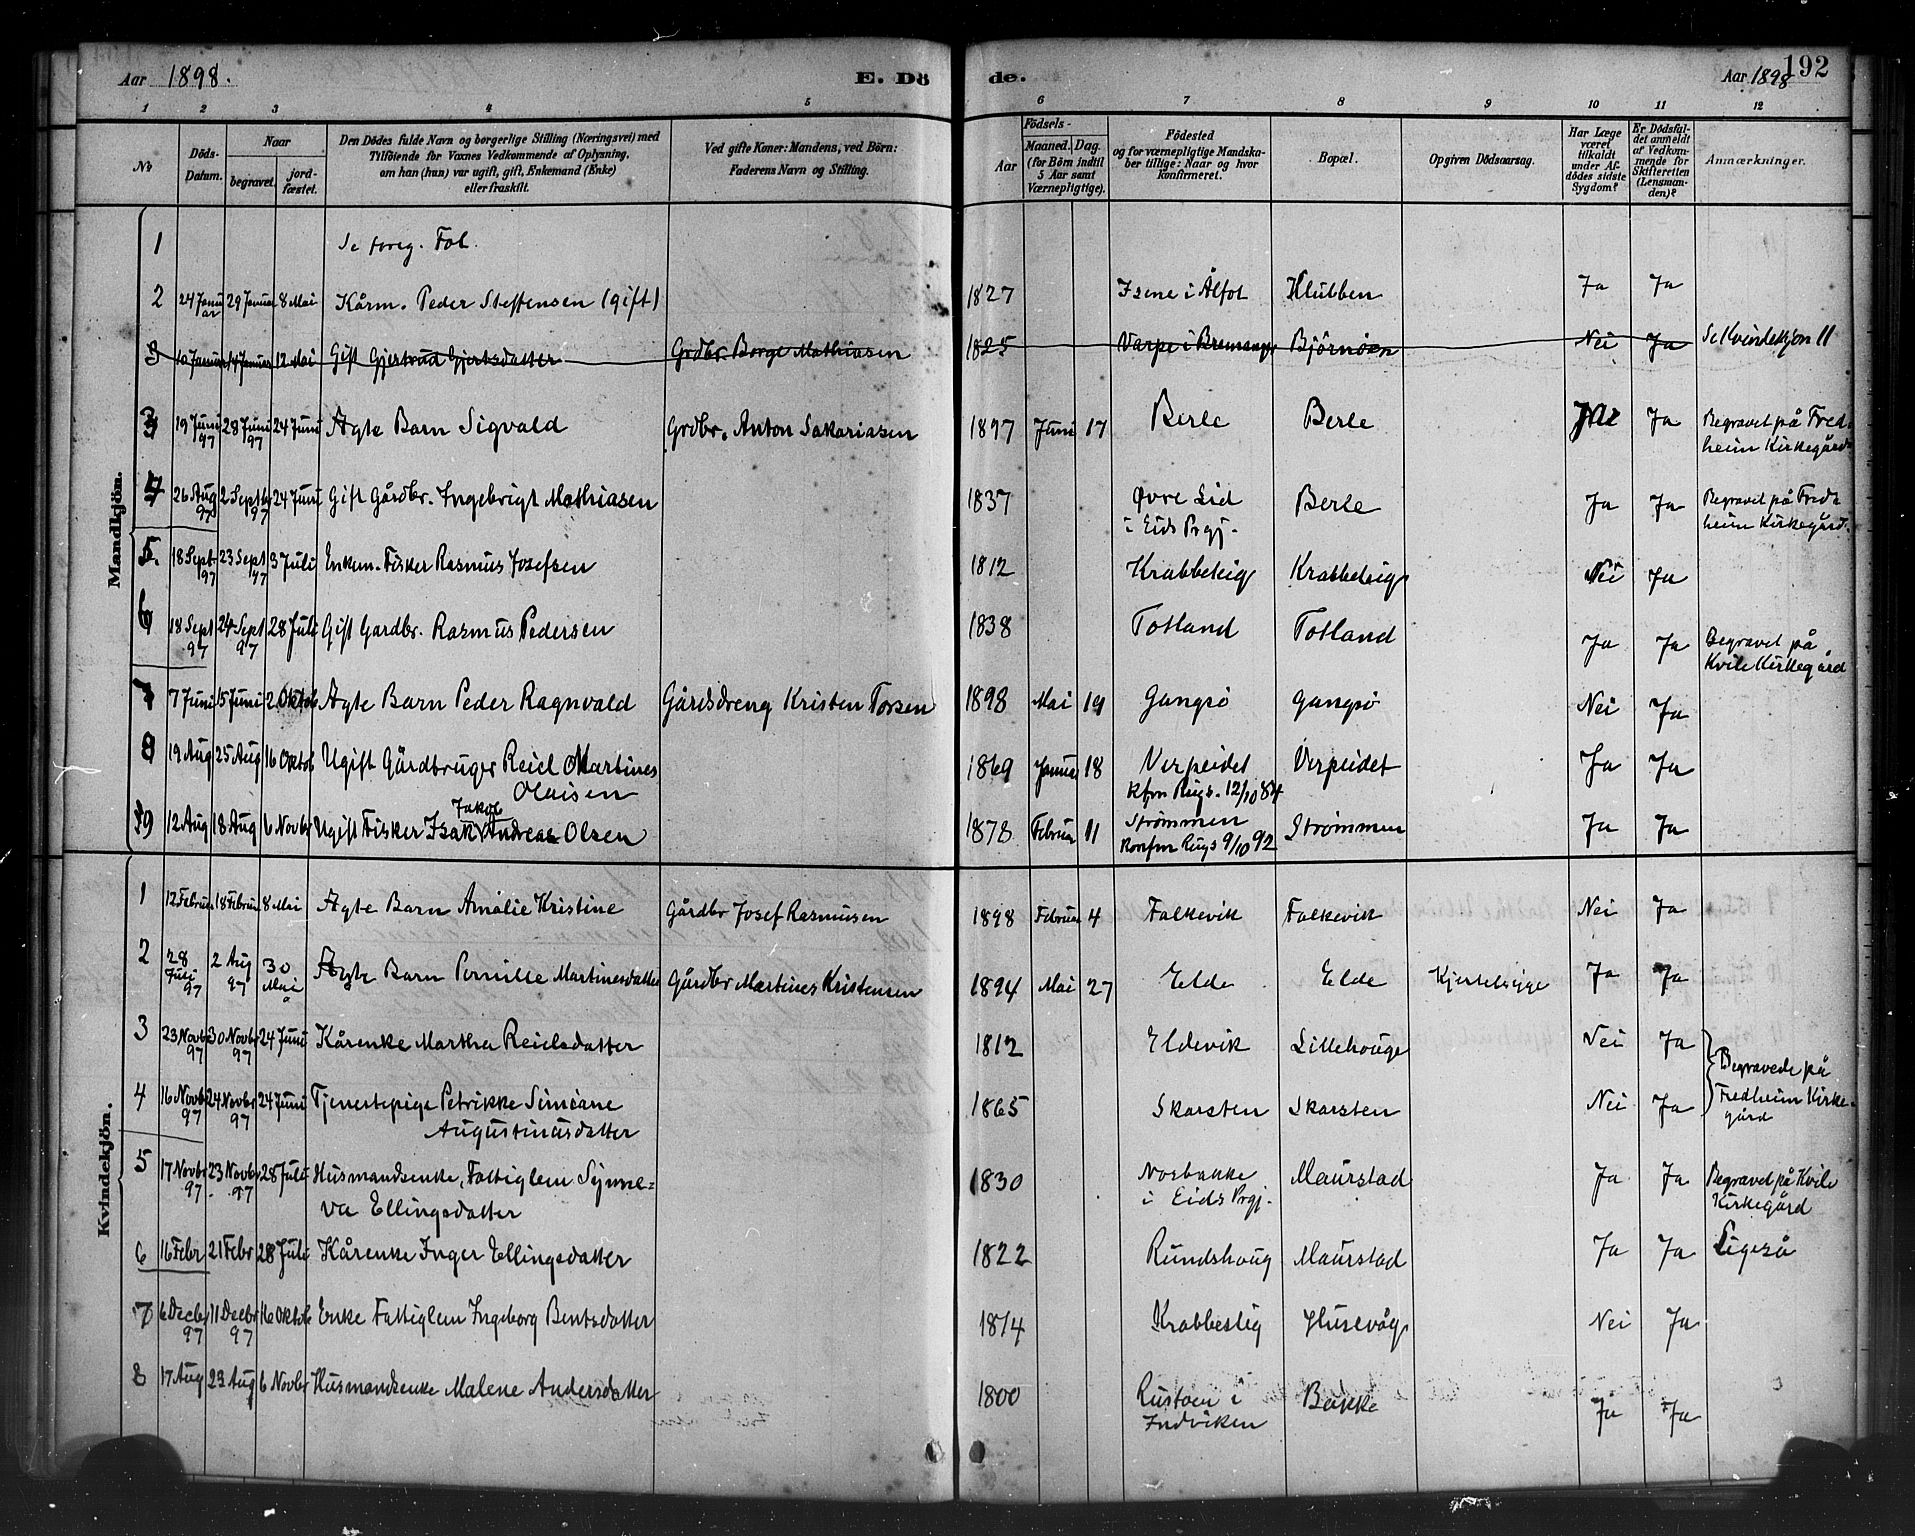 Aar 1898. E. Dö de. Aar 1898 192
1 2 3 4 5 6 7 8 9 10 11 12
No
Döds-Datum.
Naar
begravet.
jord-fæstet.
Den Dödes fulde Navn og borgerlige Stilling (Næringsvei) med
Tilföiende for Voxnes Vedkommende af Oplysning,
om han (hun) var ugift, gift, Enkemand (Enke)
eller fraskilt.
Ved gifte Koner: Mandens, ved Börn:
Faderens Navn og Stilling.
Födsels-
Aar
Maaned. Dag.
(for Börn indtil
5 Aar samt
Værnepligtige).
Födested
og for værnepligtige Mandska-
ber tillige: Naar og hvor
konfirmeret.
Bopæl.
Opgiven Dödsaarsag.
Har Læge
været
tilkaldt
under Af-
dödes sidste
Sygdom?
Er Dödsfal-
det anmeldt
af Vedkom-
mende for
Skifteretten
(Lensman-
den)?
Anmærkninger.
Mandkjön.
1 Se foreg. Fol.
2 24 Januar 29 Januar 8 Mai Kårm. Peder Steffensen (gift) 1827 Isene i Ålfot Klubben Ja Ja
3 10 Januar 14 Januar 12 Mai Gift Gjertrud Gjertsdatter Grdbr. Børge Mathiasen 1825 Varpe i Bremanger Björnöen Nei Ja Se Kvindekjön 11
3 19 Juni 97 28 Juni 97 24 Juni Ægte Barn Sigvald Grdbr. Anton Sakariasen 1897 Juni 17 Berle Berle Ja Begravet på Fred-
heim Kirkegård
4 26 Aug 97 2 Septbr 97 24 Juni Gift Gårdbr. Ingebrigt Mathiasen 1837 Øvre Lid
i Eids Prgj. Berle Ja Ja Begravet på Fred-
heim Kirkegård
5 18 Sept 97 23 Sept 97 3 Juli Enkem. Fisker Rasmus Josefsen 1812 Krabbeleig Krabbeleig Nei Ja
6 18 Sept 97 24 Sept 97 28 Juli Gift Gardbr. Rasmus Pedersen 1838 Totland Totland Ja Ja Begravet på
Kvile Kirkegård
7 7 Juni 15 Juni 2 Oktob Ægte Barn Peder Ragnvald Gårdsdreng Kristen Torsen 1898 Mai 19 Gangsö Gangsö Nei Ja
8 19 Aug 25 Aug 16 Oktob Ugift Gårdbruger Reiel Martines
Olaisen 1869 Januar 18 Verpeidet
Kfm Rugs. 12/10 84 Verpeidet Ja Ja
9 12 Aug 18 Aug 6 Novbr Ugift Fisker Isak Jakob Andreas Olsen 1878 Februar 11 Strømmen
Konfm Rugs 9/10 92 Strømmen Ja Ja
Kvindekjön.
1 12 Februar 18 Februar 8 Mai Ægte Barn Amalie Kristine Gårdbr Josef Rasmusen 1898 Februar 4 Falkevik Falkevik Nei Ja
2 28 Juli 97 2 Aug 97 30 Mai Ægte Barn Pernille Martinesdatter Gårdbr Martines Kristensen 1894 Mai 27 Elde Elde Kjertelsyge Ja Ja
3 23 Novbr 97 30 Novbr 97 24 Juni Kårenke Martha Reielsdatter 1812 Eldevik Lillehouge Nei Ja
4 16 Novbr 97 24 Novbr 97 24 Juni Tjenestepige Petrikke Simeane
Augustinusdatter 1865 Skarsten Skarsten Nei Ja Begravede på
Fredheim Kirke-
gård
5 17 Novbr 97 23 Novbr 97 28 Juli Husmandsenke, Fattiglem Synne-
va Ellingsdatter 1830 Nosbakke
i Eids Prgj. Maurstad Ja Ja Begravet på Kvile
Kirkegård
6 16 Febr 21 Febr 28 Juli Kårenke Inger Ellingsdatter 1822 Rundshoug Maurstad Ja Ja Ligeså
7 6 Decbr 97 11 Decbr 97 16 Oktob Enke Fattiglem Ingeborg Bentsdatter 1814 Krabbestig Husevåg Nei Ja
8 17 Aug 23 Aug 6 Novbr Husmandsenke Malene Andersdatter 1800 Rustoen i
Indviken Bakke Ja Ja